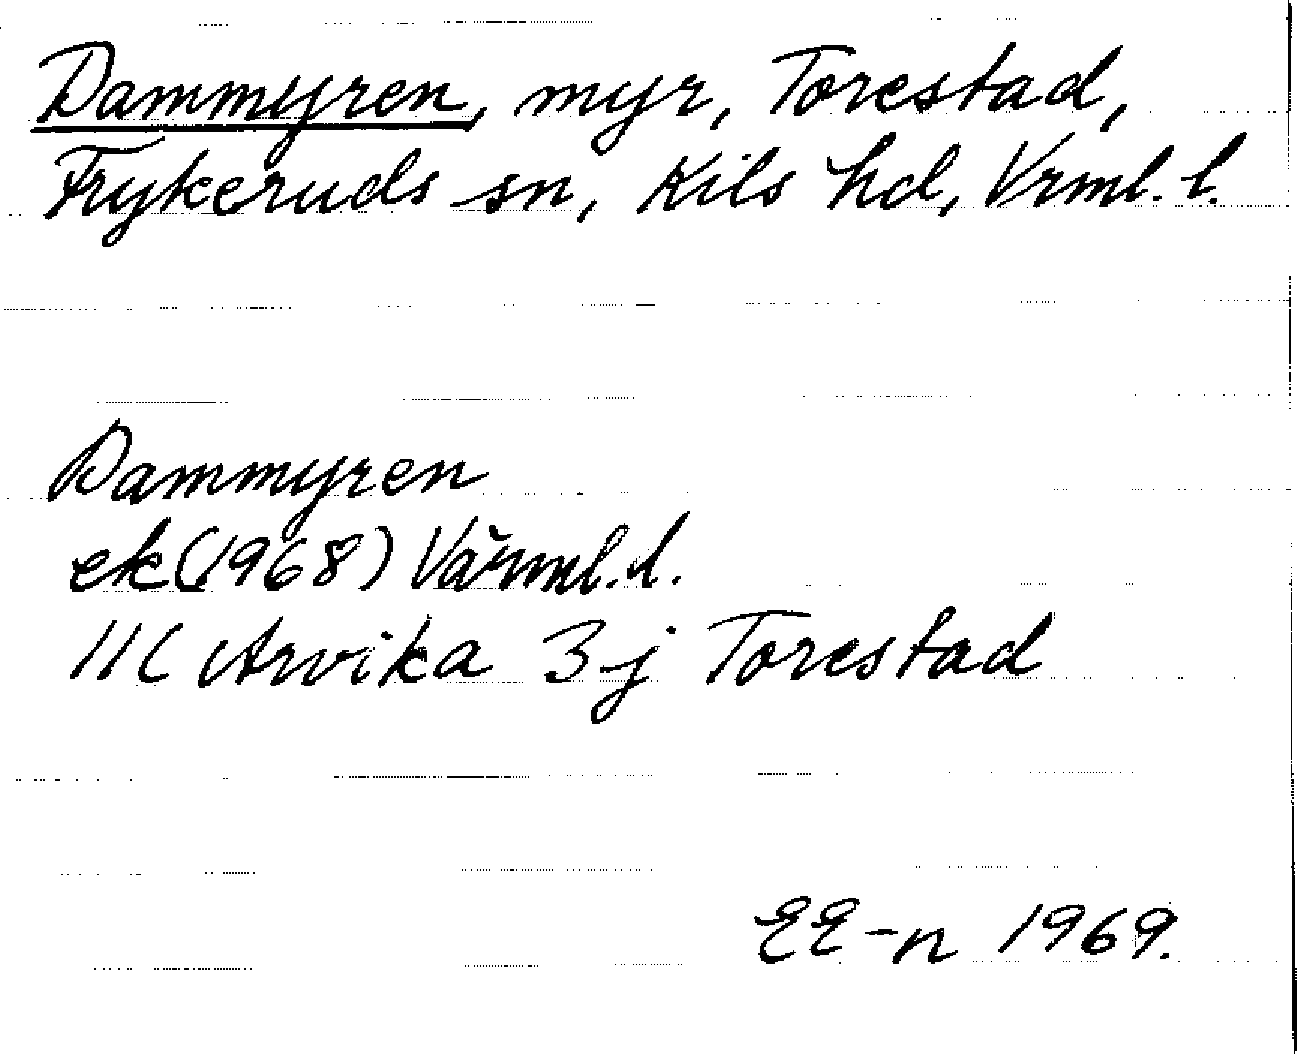 Dammyren, myr, Torestad,
Frykeruds sn, Kils hd, Vrml. l.
Dammyren
ek (1968) Värml. l.
11C Arvika 3j Torestad
EE-n 1969.